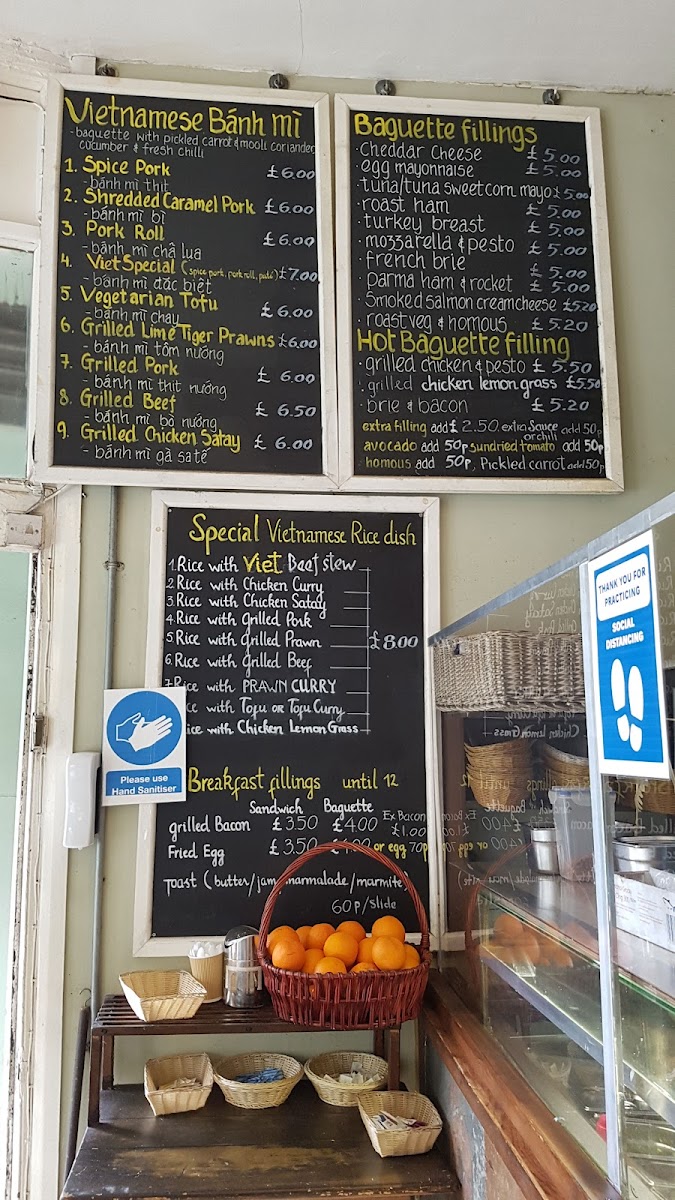 Vietnamese Bánh mì
- baguette with pickled carrot & mooli coriander
cucumber & fresh chilli
1. Spice Pork £6.00
- bánh mì thịt
2. Shredded Caramel Pork £6.00
- bánh mì bì
3. Pork Roll £6.00
- bánh mì chả lụa
4. Viet Special (spice pork, pork roll, paté) £7.00
- bánh mì đăc biệt
5. Vegetarian Tofu £6.00
- bánh mì chay
6. Grilled Lime Tiger Prawns £6.00
- bánh mì tôm nướng
7. Grilled Pork £ 6.00
- bánh mì thịt nướng
8. Grilled Beef £ 6.50
- bánh mì bò nướng
9. Grilled Chicken Satay £ 6.00
- bánh mì gà satế
Baguette fillings
· cheddar cheese £5.00
· egg mayonnaise £5.00
· tuna/tuna sweetcorn mayo £5.00
· roast ham £5.00
· turkey breast £5.00
· mozzarella & pesto £5.00
· french brie £5.00
· parma ham & rocket £5.00
· Smoked salmon cream cheese £5.20
· roast veg & homous £5.20
Hot Baguette filling
· grilled chicken & pesto £5.50
· grilled chicken lemon grass £5.50
· brie & bacon £5.20
extra filling add £2.50. extra Sauce or chili add 50p
avocado add 50p sundried tomato add 50p
homous add 50p, Pickled carrot add 50p
Special Vietnamese Rice dish
1. Rice with Viet Beef stew
2. Rice with Chicken Curry
3. Rice with Chicken Satay
4. Rice with Grilled Pork
5. Rice with Grilled Prawn £8.00
6. Rice with Grilled Beef
7. Rice with PRAWN CURRY
ice with Tofu or Tofu Curry
ice with Chicken Lemon Grass
Breakfast fillings until 12
Sandwich Baguette
grilled Bacon £3.50 £4.00 Ex Bacon £1.00
Fried Egg £3.50 or egg 70p
Toast (butter/jam/marmalade/marmite)
60p/slide
Please use
Hand Sanitiser
THANK YOU FOR
PRACTICING
SOCIAL
DISTANCING